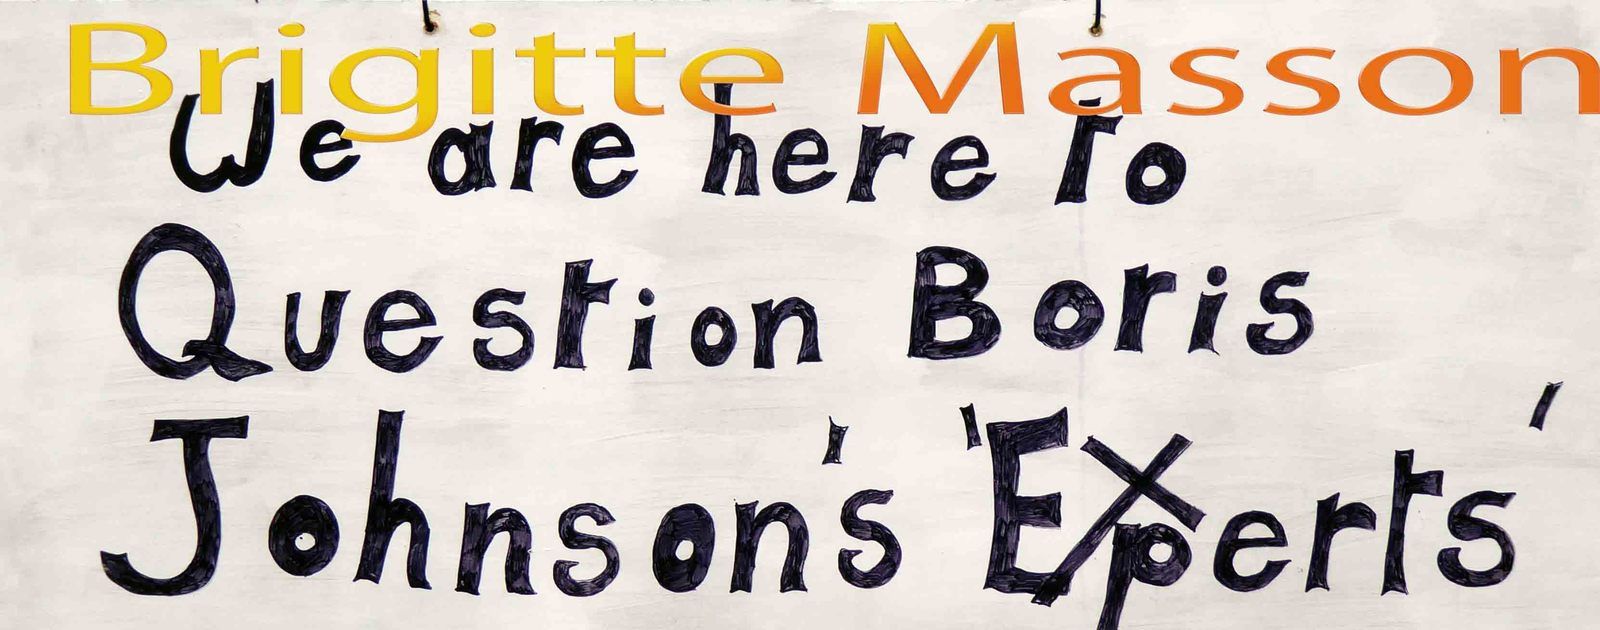 Brigitte Masson
We are here to
Question Boris
Johnson's 'Experts'